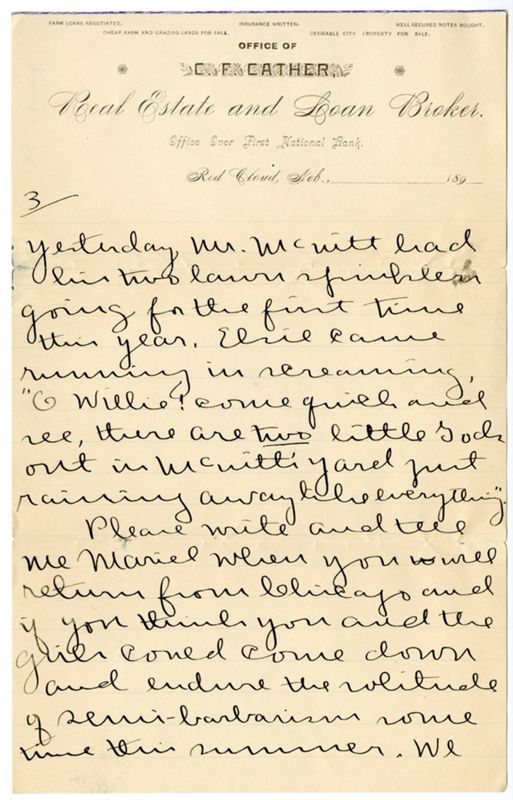 FARM LOANS NEGOTIATED. INSURANCE WRITTEN. WELL SECURED NOTES BOUGHT.
CHEAP FARM AND GRAZING LANDS FOR SALE. DESIRABLE CITY PROPERTY FOR SALE.
OFFICE OF
C. F. CATHER,
Real Estate and Loan Broker.
Office Over First National Bank.
Red Cloud, Neb., 189
3
yesterday Mr. McNitt had
his two lawn sprinklers
going for the first time
this year. Elsie came
running in screaming,
"O Willie! come quick and
see, there are two little Gods
out in McNitt's yard just
raining away like everything".
Please write and tell
me Mariel when you will
return from Chicago and
if you think you and the
girls could come down
and endure the solitude
of semi-barbarism some
time this summer. We